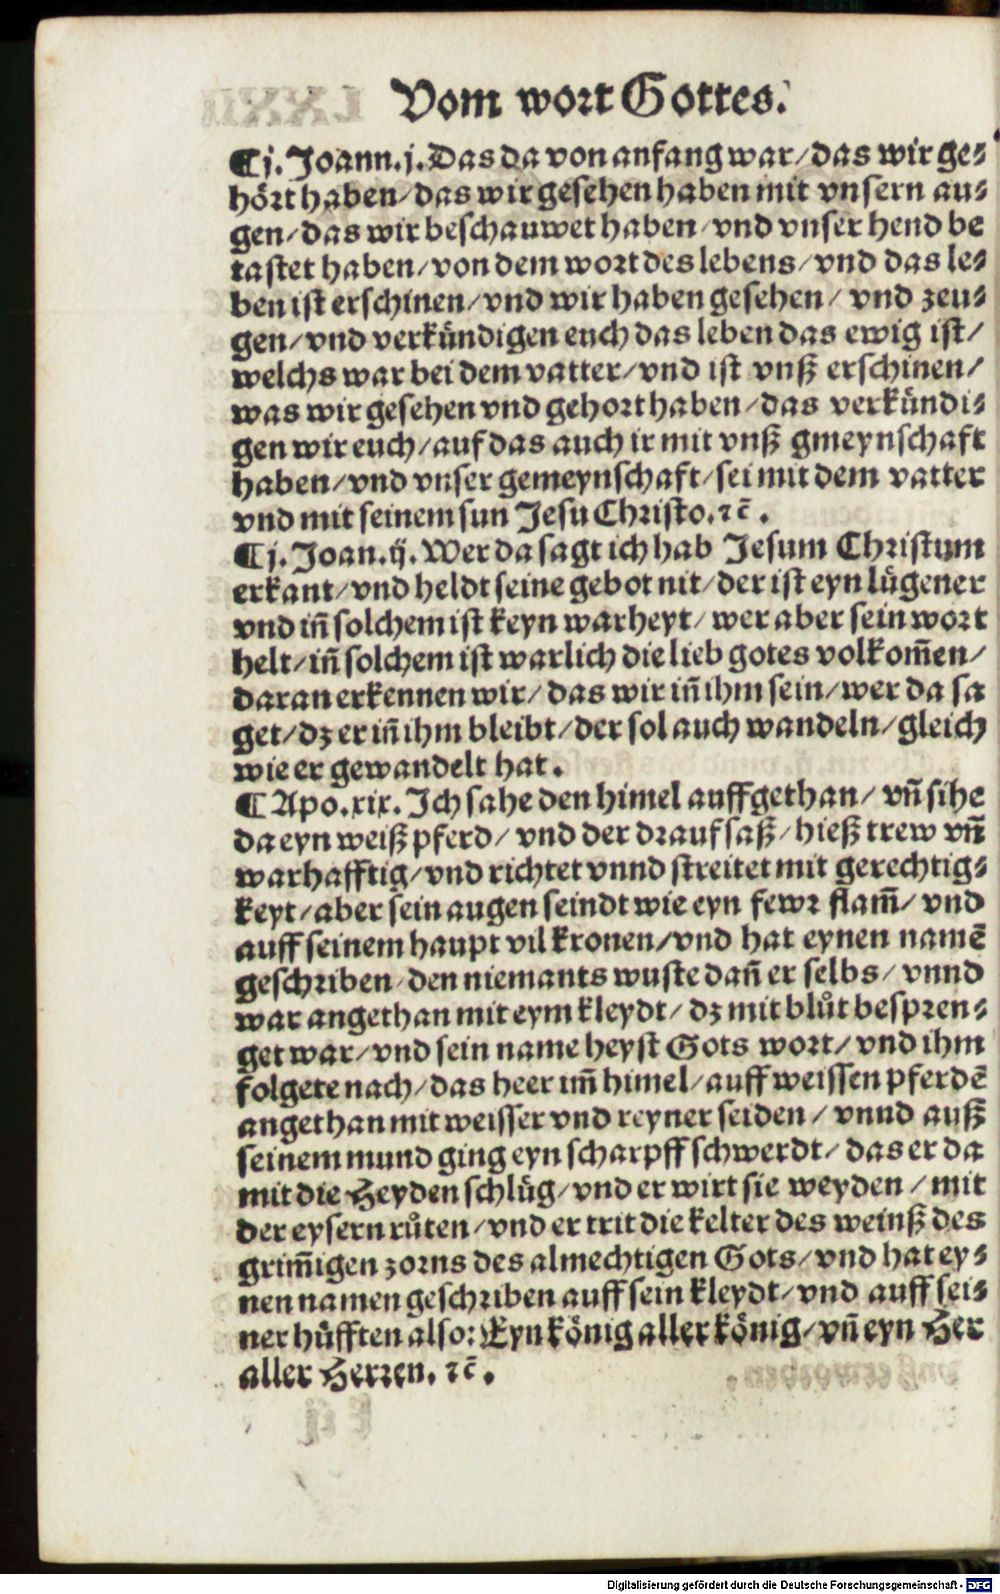 Vom wort Gottes.
¶j. Joann. j. Das da von anfang war/das wir ge⸗
hört haben/das wir gesehen haben mit vnsern au⸗
gen/das wir beschauwet haben/vnd vnser hend be
tastet haben/von dem wort des lebens/vnd das le⸗
ben ist erschinen/vnd wir haben gesehen/ vnd zeu⸗
gen/vnd verkündigen euch das leben das ewig ist/
welchs war bei dem vatter/vnd ist vnß erschinen/
was wir gesehen vnd gehort haben/das verkündi⸗
gen wir euch/auf das auch ir mit vnß gmeynschaft
haben/vnd vnser gemeynschaft/sei mit dem vatter
vnd mit seinem sun Jesu Christo. ꝛc̄.
¶j. Joan. ij. Wer da sagt ich hab Jesum Christum
erkant/vnd heldt seine gebot nit/der ist eyn lügener
vnd iñ solchem ist keyn warheyt/ wer aber sein wort
helt/iñ solchem ist warlich die lieb gotes volkom̃en/
daran erkennen wir/ das wir iñ ihm sein/wer da sa
get/dz er iñ ihm bleibt/der sol auch wandeln/gleich
wie er gewandelt hat.
¶ Apo. xix. Ich sahe den himel auffgethan/ vñ sihe
da eyn weiß pferd/ vnd der drauf saß/hieß trew vñ
warhafftig/vnd richtet vnnd streitet mit gerechtig⸗
keyt/aber sein augen seindt wie eyn fewr flam̃/ vnd
auff seinem haupt vil kronen/vnd hat eynen namẽ
geschriben/den niemants wuste dañ er selbs/ vnnd
war angethan mit eym kleydt/ dz mit blůt bespren⸗
get war/vnd sein name heyst Gots wort/vnd ihm
folgete nach/das heer im̃ himel/auff weissen pferdẽ
angethan mit weisser vnd reyner seiden/ vnnd auß
seinem mund ging eyn scharpff schwerdt/ das er da
mit die Heyden schlüg/vnd er wirt sie weyden/mit
der eysern růten/vnd er trit die kelter des weinß des
grim̃igen zorns des almechtigen Gots/vnd hat ey⸗
nen namen geschriben auff sein kleydt/vnd auff sei⸗
ner hüfften also: Eyn könig aller könig/vñ eyn Her
aller Herren. ꝛc̄.
Digitalisierung gefördert durch die Deutsche Forschungsgemeinschaft - DFG